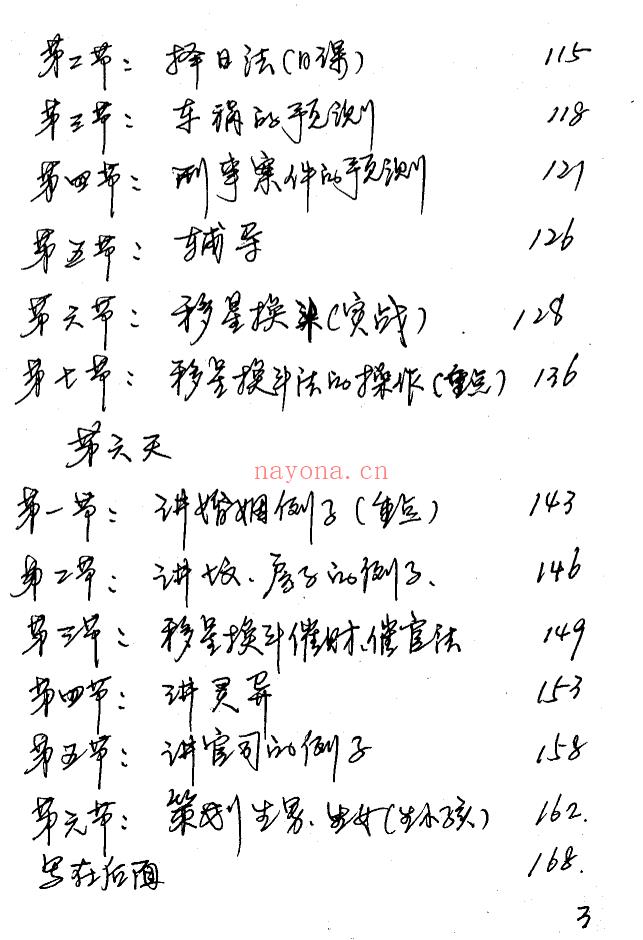 第二节：择日法(日课) 115
第三节：车祸的预测 118
第四节：刑事案件的预测 121
第五节：辅导 126
第六节：移星换斗(实战) 128
第七节：移星换斗法的操作(重点) 136
第六天
nayona.cn
第一节：讲婚姻例子(重点) 143
第二节：讲坟、房子的例子. 146
第三节：移星换斗催财、催官法 149
第四节：讲灵异 153
第五节：讲官司的例子 158
第六节：策划生男、生女(生小孩) 162.
写在后面 168.
3